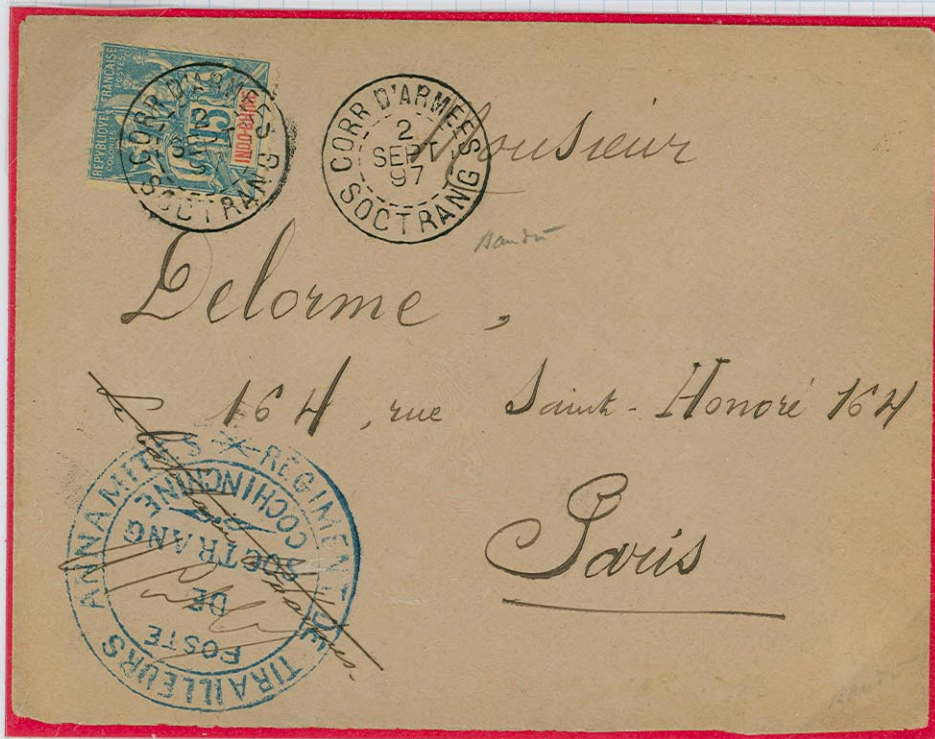 RÉPUBLIQUE FRANÇAISE
COLONIES POSTES
INDO-CHINE
15
CORR D'ARMÉES
2
SEPT
97
SOCTRANG
CORR D'ARMEES
2
SEPT
97
SOCTRANG
Monsieur
Delorme,
164, rue Saint-Honoré 164
Paris
REGIMENT DE TIRAILLEURS ANNAMITES
COCHINCHINE
POSTE
DE
SOCTRANG
Le Capitaine